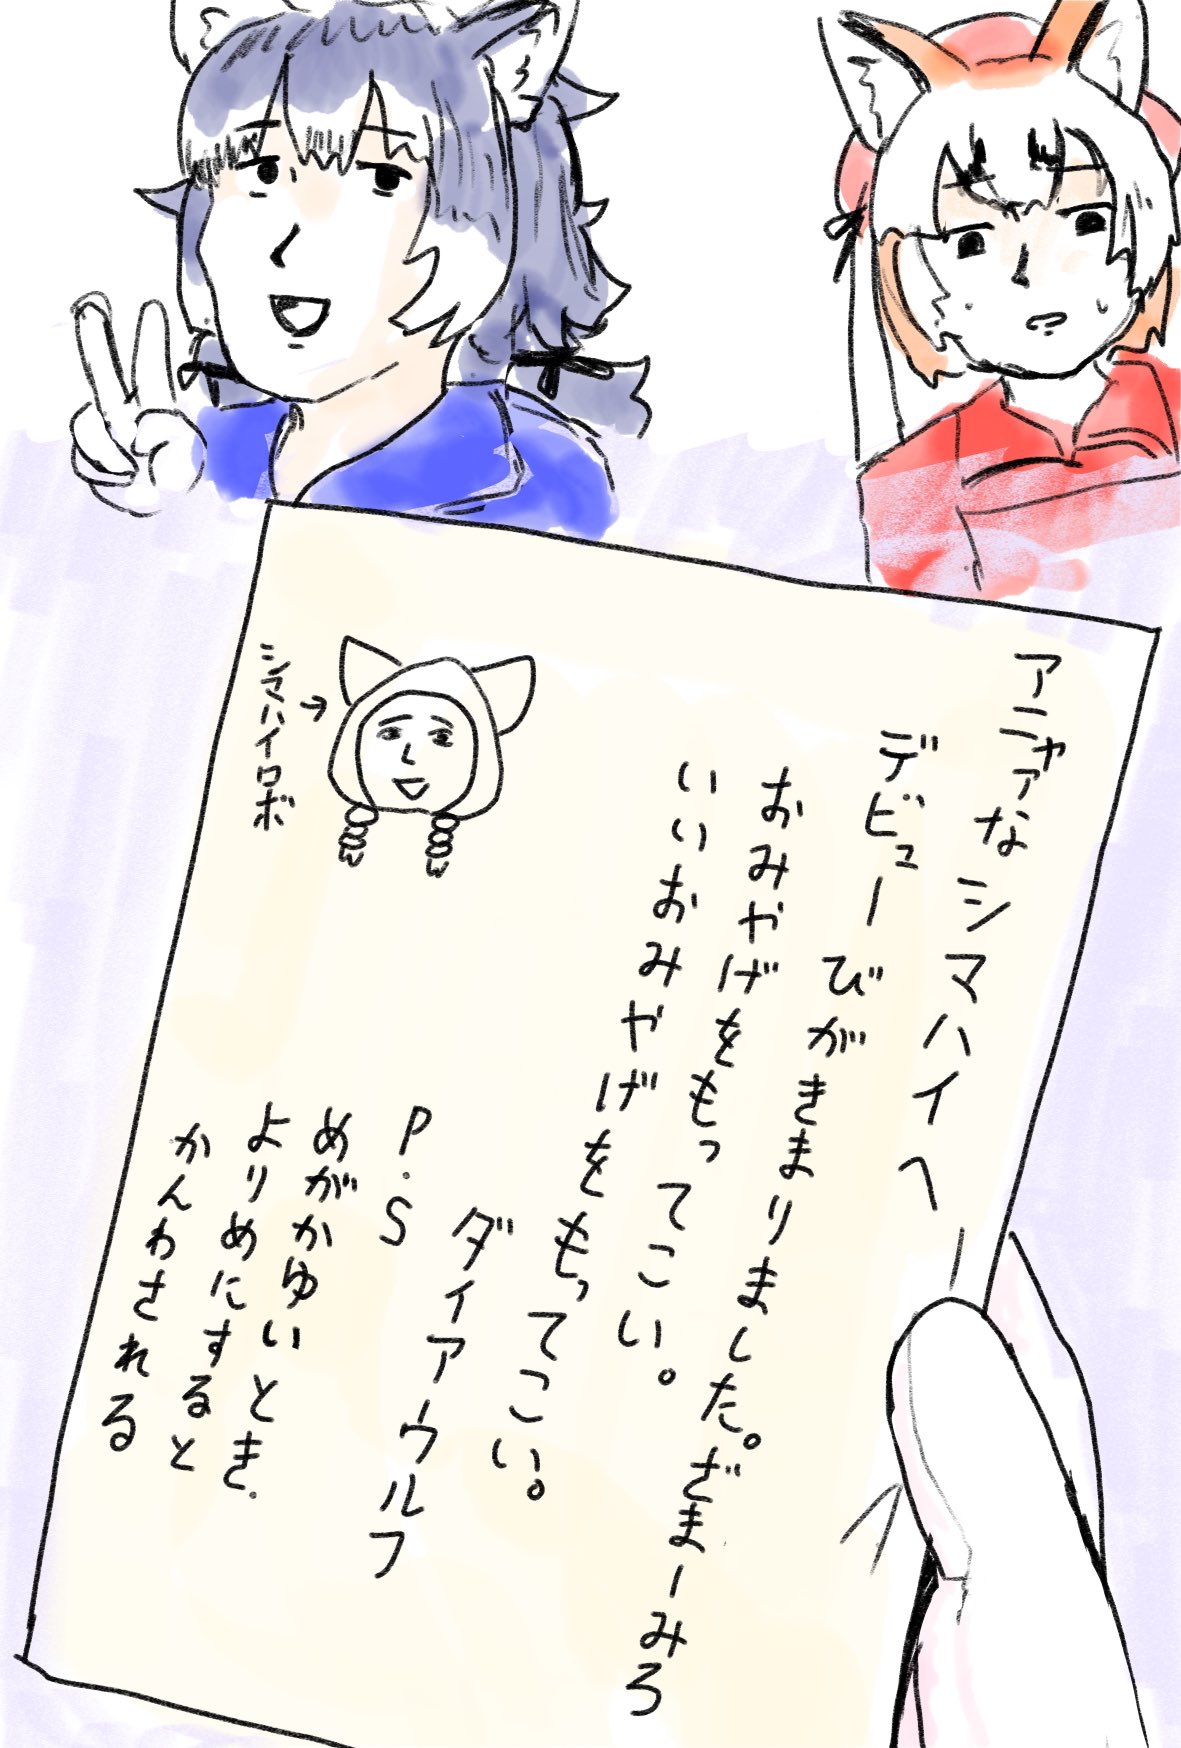 アニャアなシマハイへー
デビューびがきまりました。ざまーみろ
おみやげをもってこい。
いいおみやげをもってこい。
ダイアーウルフ
P.S
めがかゆいとき、
よりめにすると
かんわされる
シマハイロボ